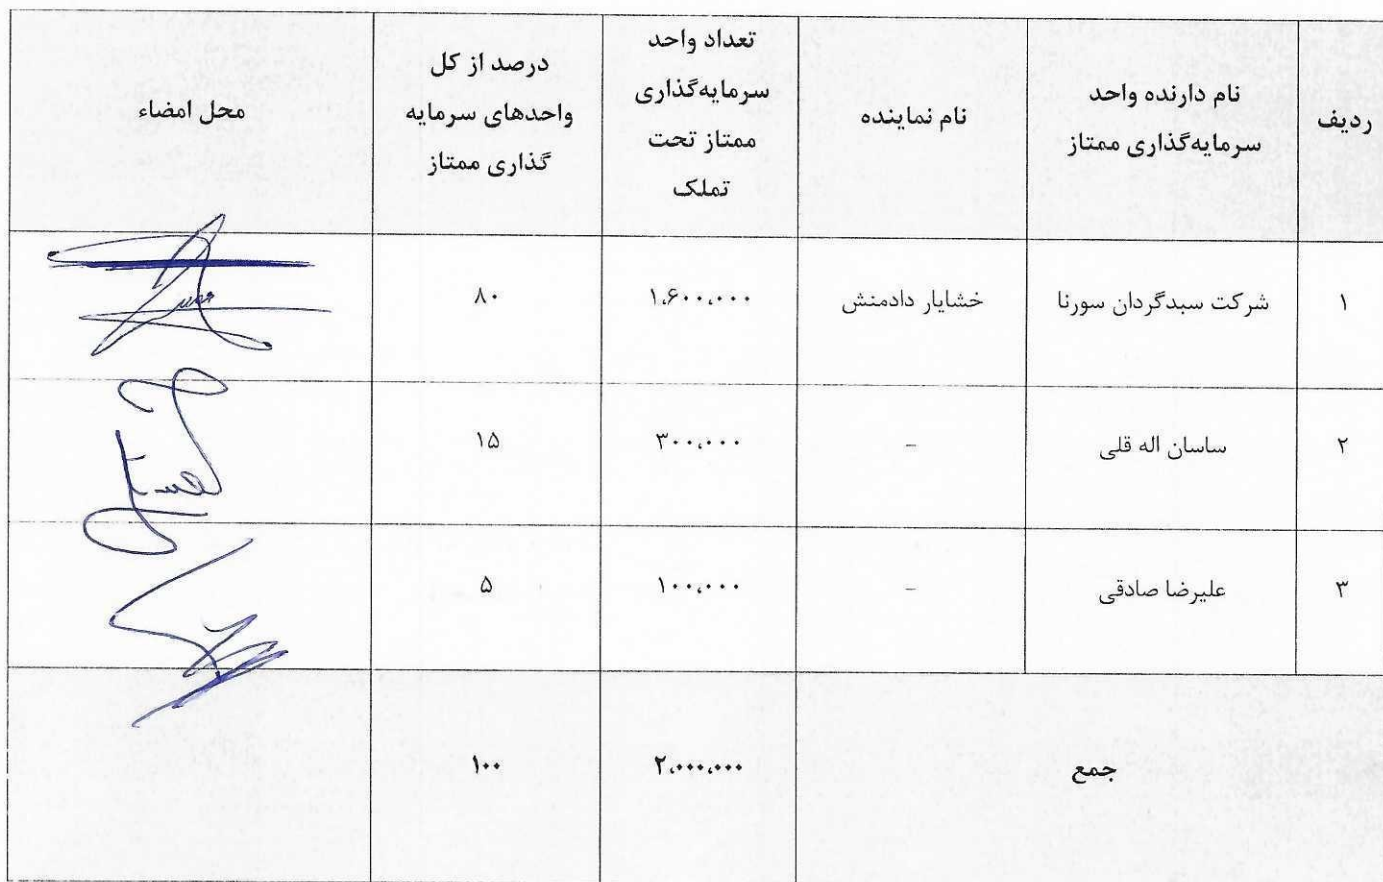 ردیف
نام دارنده واحد
سرمایه‌گذاری ممتاز
نام نماینده
تعداد واحد
سرمایه‌گذاری
ممتاز تحت
تملک
درصد از کل
واحدهای سرمایه
گذاری ممتاز
محل امضاء
۱ شرکت سبدگردان سورنا خشایار دادمنش ۱،۶۰۰،۰۰۰ ۸۰
۲ ساسان اله قلی - ۳۰۰،۰۰۰ ۱۵
۳ علیرضا صادقی - ۱۰۰،۰۰۰ ۵
جمع ۲،۰۰۰،۰۰۰ ۱۰۰